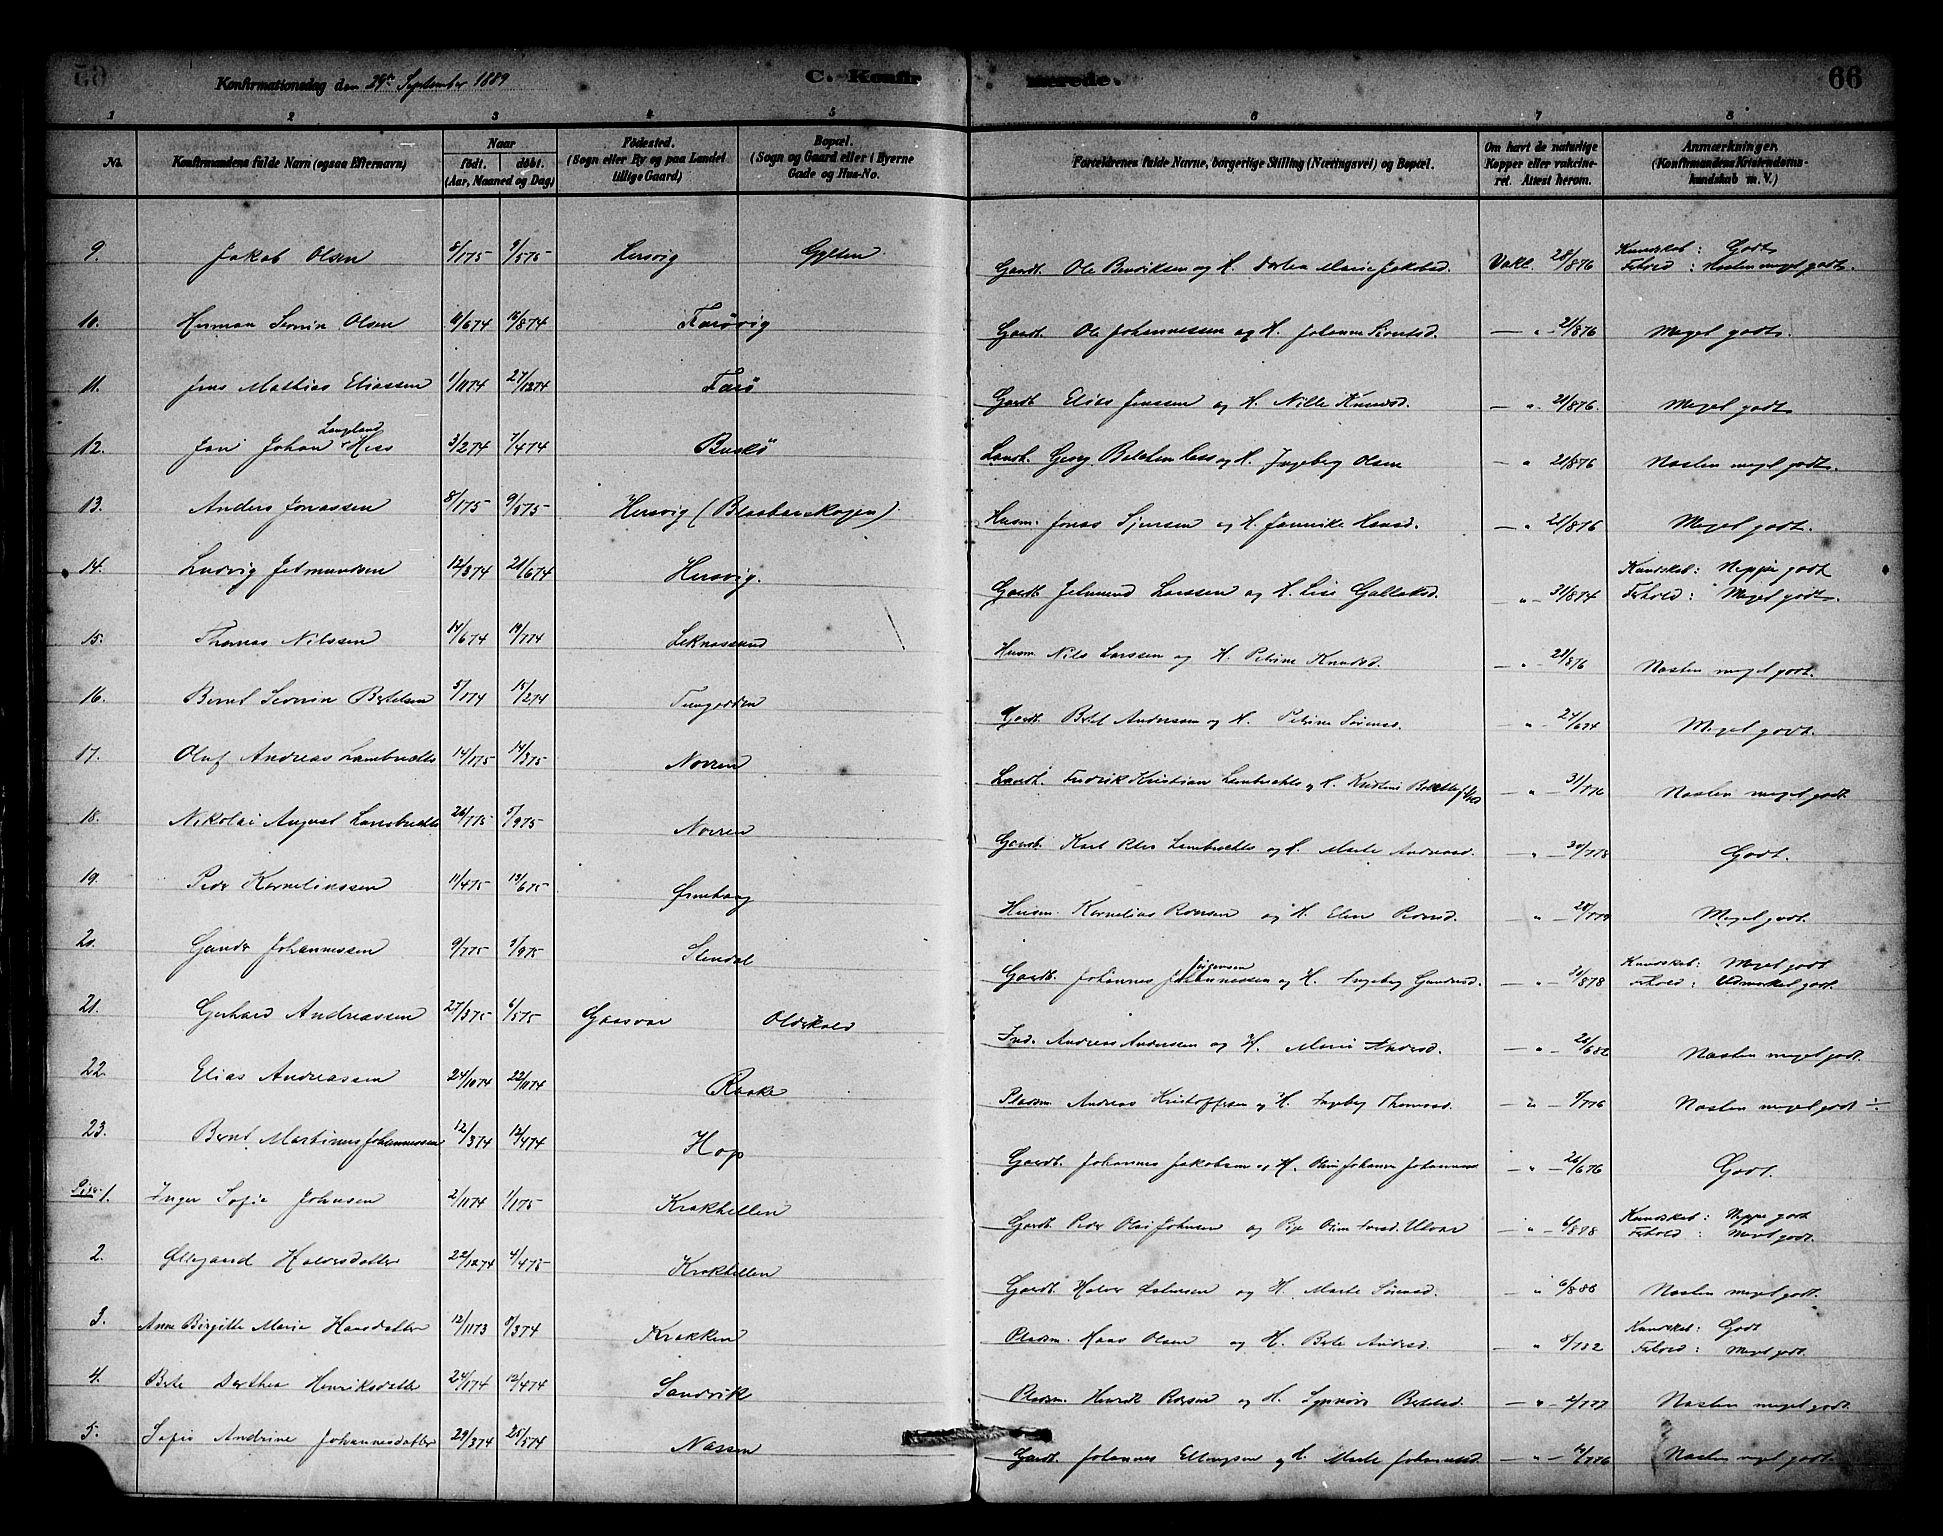 Konfirmationsdag den 29de September 1889
C. Konfirmerede.
66
1 2 3 4 5 6 7 8
No. Konfirmandens fulde Navn (ogsaa Efternavn) Naar født. døbt. (Aar, Maaned og Dag) Fødested. (Sogn eller By og paa Landet tillige Gaard) Bopæl. (Sogn og Gaard eller i Byerne Gade og Hus-No. Forældrenes fulde Navne, borgerlige Stilling (Næringsvei) og Bopæl. Om havt de naturlige Kopper eller vakcineret. Attest herom. Anmærkninger. (Konfirmandens Kristendomskundskab m. V.)
9. Jakob Olsen 8/1 75 9/5 75 Hersvig Gylten Gaardb. Ole Benriksen og H. Dorthea Marie Jakobsd. Vakc. 28/8 76 Kundskab: Godt Forhold: Næsten meget godt.
10. Herman Severin Olsen 6/74 16/8 74 Færøvig Gaardb. Ole Johannessen og H. Johanne — " — 21/8 76 Meget godt.
11. Jens Mathias Eliassen 1/11 74 27/12 74 Færø Gaardb. Elias Jenssen og H. Nille Knudsd. — " 21/8 76. Meget godt
12. Jan Johan Langland Hess 3/2 74 7/4 74 Buskø Landh. Georg Hess og H. Ingeborg Olsen — " 21/8 76 Næsten meget godt.
13. Anders Jonassen 8/1 75 9/5 75 Hersvig (Blaabærskogen) Husm. Jonas Sjursen og H. Jannike Hansd. — " 21/8 76 Meget godt.
14. Ludvig Jetmundsen 12/3 74 21/6 74 Hersvig. Gaardb. Jetmund Larssen og H. Lise Gullaksd. " — 31/8 74 Kundskab: Neppe godt Forhold: Meget godt.
15. Thomas Nilssen 14/6 74 19/7 74 Leknessund Husm. Nils Larssen og H. Petrine Knudsd. — " 21/8 76 Næsten meget godt.
16. Bernt Severin Bertelsen 5/1 74 15/2 74 Tungodden Gaardb. Bertel Andersen og H. Petrine Sørensd. " — 24/6 74 Meget godt.
17. Oluf Andreas Lambrechts 14/1 75 14/3 75 Novren Landh. Fredrik Kristian Lambrechts og H. Kristine — " — 31/7 76 Næsten meget godt
18. Nikolai August Lambrechts 26/7 75 5/9 75 Novren Gaardb. Karl Lambrechts og H. Marte Andersd. " — 30/7 78 Godt.
19. Peder Korneliussen 11/4 75 13/6 75 Ørnehaug Husm. Kornelius og H. Elen Pedersd. " Meget godt.
20. Gunder Johannessen 9/7 75 5/9 75 Stendal Gaardb. Johannes Jørgensen og H. Ingeborg Gundersd. " — 21/8 78 Kundskab: Meget godt Forhold: Udmærket godt.
21. Gerhard Andreassen 27/3 75 6/5 75 Gaasvær Olderkold Ind. Andreas Andersen og H. Marie Andersd. — " — 26/6 82 Næsten meget godt.
22. Elias Andreassen 24/10 74 22/11 74 Raake Pladsm. Andreas Kristoffersen og H. Ingeborg Thomasd. " — 1/7 76 Næsten meget godt ÷
23. Bernt Martinus Johannessen 12/3 74 12/4 74 Hop Gaardb. Johannes Jakobsen og H. Johanne — " — 26/6 76 Godt.
Piger 1. Inger Sofie Johnsen 2/11 74 1/1 75 Krakhellen Gaardb. Peder Olai Johnsen og Pige Ulvær — " — 6/8 88 Kundskab: Neppe godt Forhold: Meget godt.
2. Øllegaard Halvorsdatter 22/12 74 4/4 75 Krakhellen Gaardb. Halvor og H. Marte Sørensd. — " 6/8 88 Næsten meget godt.
3. Anne Birgitte Marie Hansdatter 12/11 73 3/3 74 Krakken Pladsm. Hans Olsen og H. Berte Andersd. — " 8/7 82 Kundskab: Godt Forhold: Meget godt.
4. Berte Dorthea Henriksdatter 24/1 74 12/4 74 Sandvik Pladsm. Henrik og H. Synnøve Bertelsd. — " — 2/7 77 Næsten meget godt
5. Sofie Andrine Johannesdatter 29/3 74 25/5 74 Nessen Gaardb. Johannes Ellingsen og H. Marte — " — Næsten meget godt.